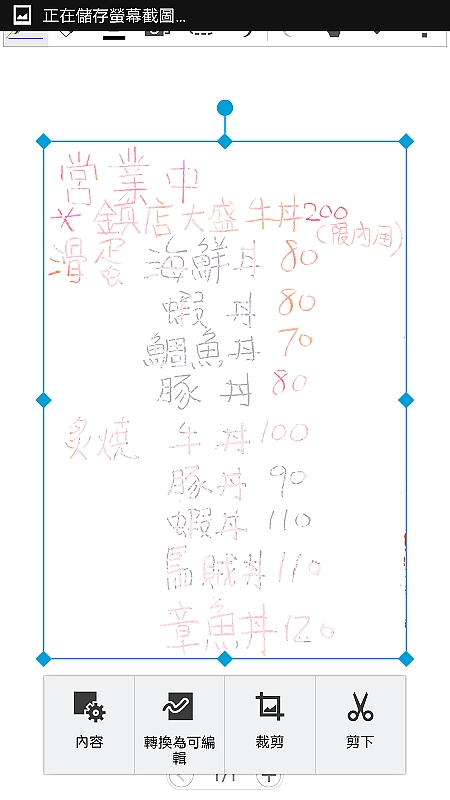 正在儲存螢幕截圖...
營業中
大 鎮店大盛牛丼200
(限內用)
滑蛋 海鮮丼 80
蝦丼 80
鯛魚丼 70
豚丼 80
炙燒 牛丼100
豚丼 90
蝦丼 110
烏賊丼110
章魚丼120
內容 轉換為可編輯 裁剪 剪下
1/1